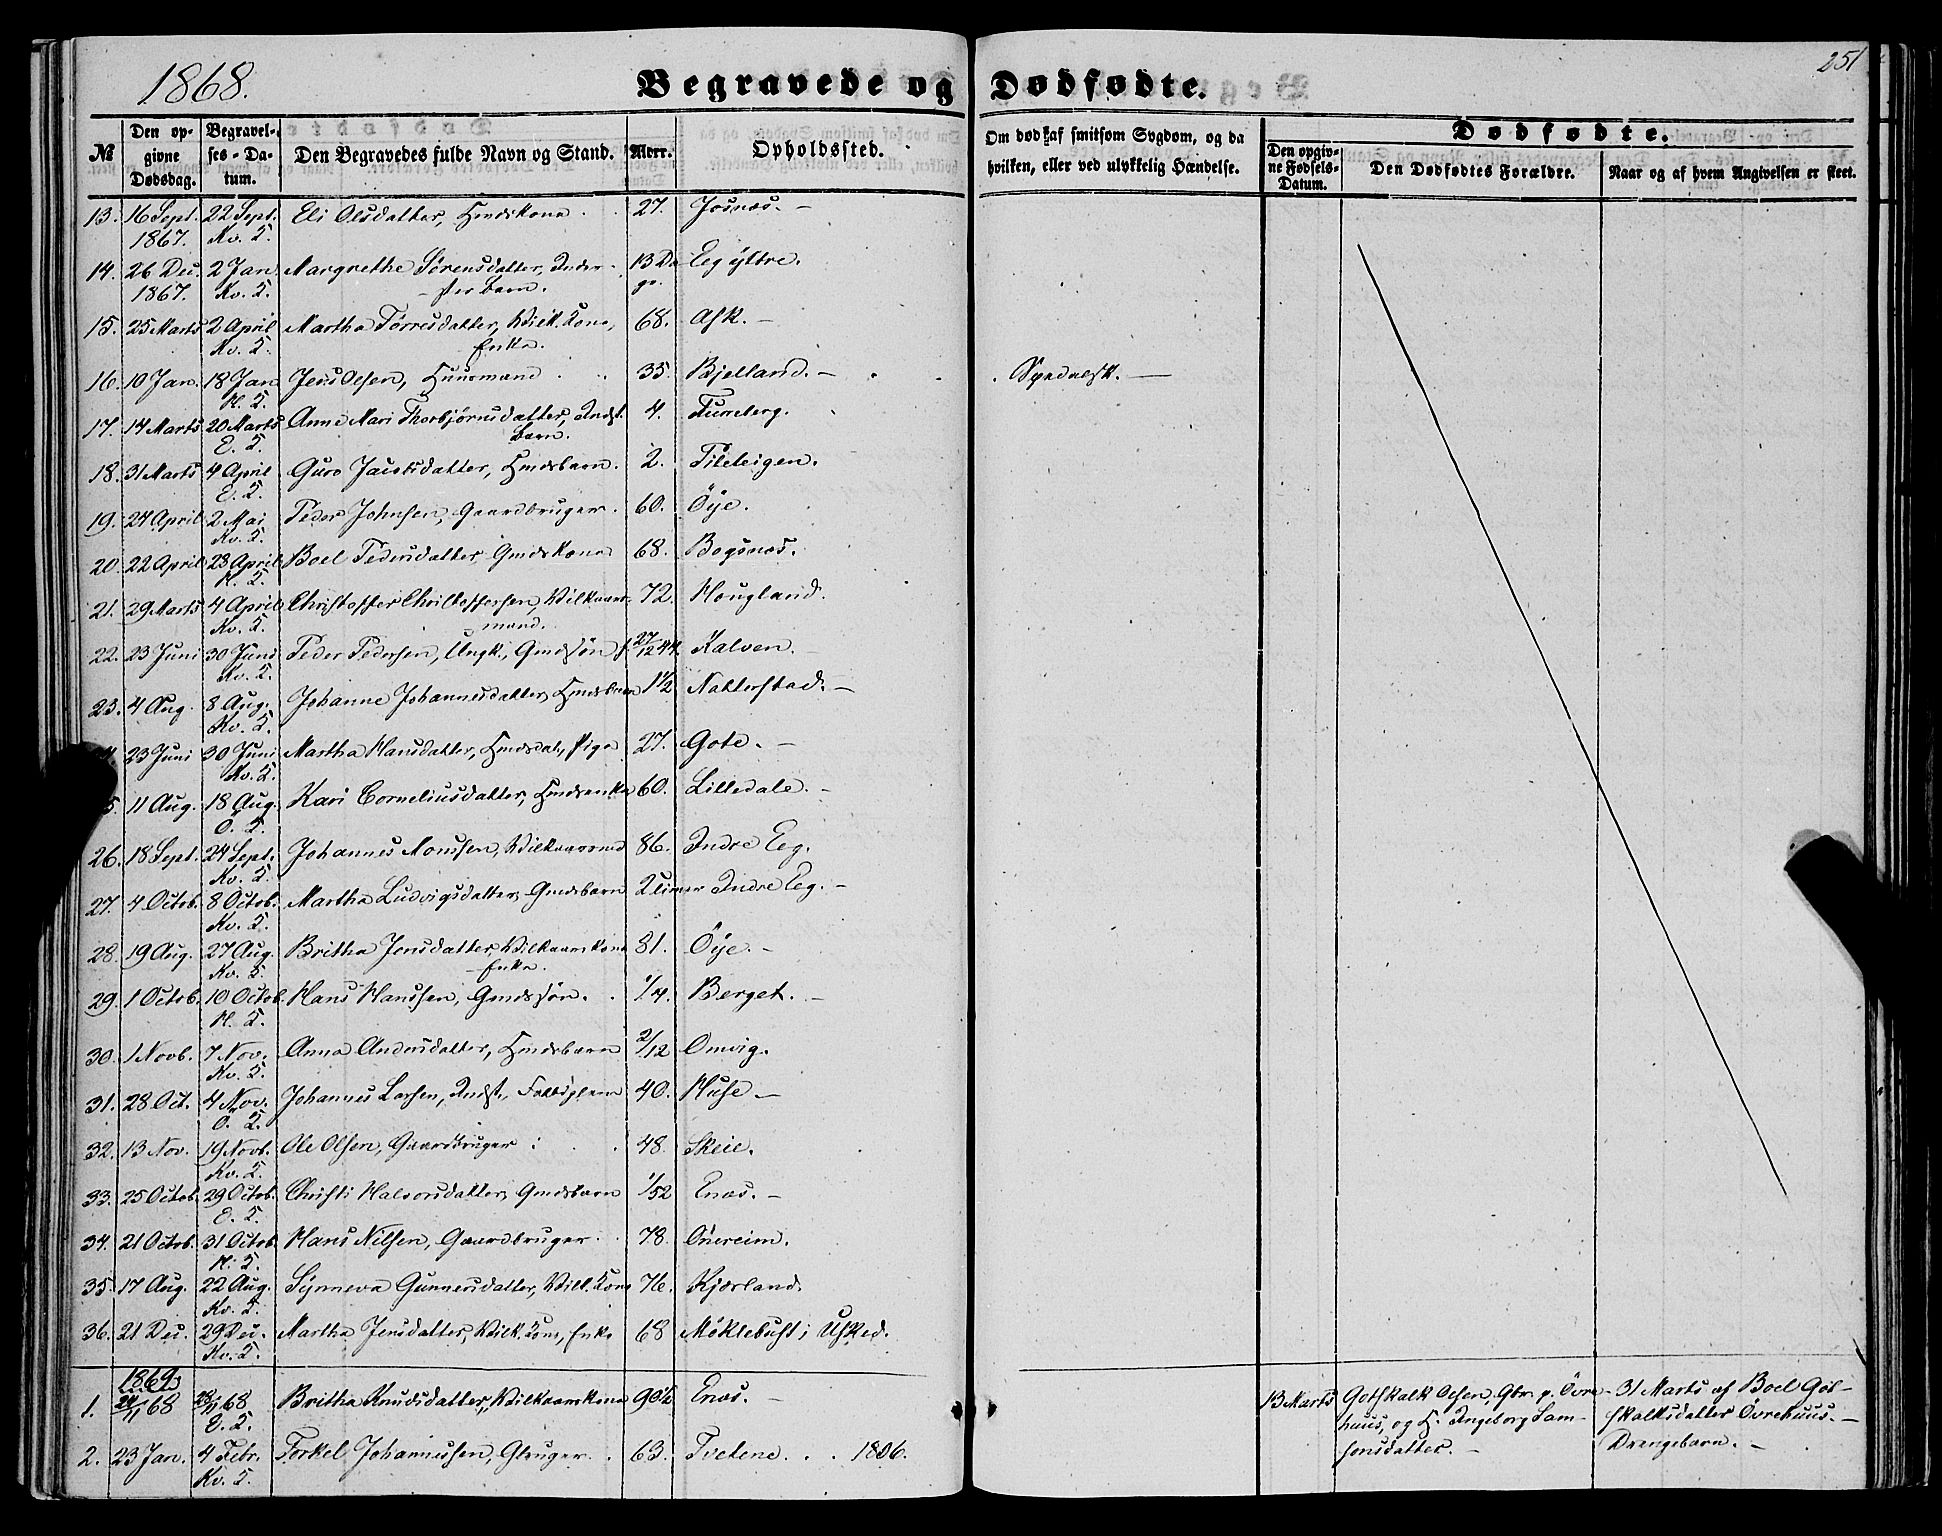 1868.
Begravede og Dødfødte.
251
№
Den opgivne Dødsdag.
Begravelses-Datum.
Den Begravedes fulde Navn og Stand.
Alder.
Opholdssted.
Om død af smitsom Sygdom, og da hvilken, eller ved ulykkelig Hændelse.
Dødfødte.
Den opgivne Fødsels-Datum.
Den Dødfødtes Forældre.
Naar og af hvem Angivelsen er skeet.
13. 16 Sept. 22 Sept. Eli Olsdatter, Hmdskone 27. Josnæs.
1867. Kv. K.
14. 26 Dec. 2 Jan. Margrethe Sørensdatter, Inder- 13 Da- Eeg yttre.
1867. Kv. K. ster barn. ge.
15. 25 Marts 2 April Martha Tørresdatter, Vilk. Kone, 68. Ask.
Kv. K. Enke.
16. 10 Jan. 18 Jan. Jens Olsen, Huusmand 35. Bjelland.
H. K.
17. 14 Marts 20 Marts Anne Mari Thorbjørnsdatter, Indst. 4. Tunsberg.
E. K. barn.
18. 31 Marts 4 April Guro Jacobsdatter, Hmdsbarn. 2. Tileteigen.
E. K.
19. 24 April 2 Mai Peder Johnsen, Gaardbruger 60. Öye.
Kv. K.
20. 22 April 28 April Boel Pedersdatter, Gmdskone 68. Bogsnæs.
H. K.
21. 29 Marts 4 April Christoffer Christoffersen, Vilkaars- 72. Hougland.
Kv. K. mand.
22. 23 Juni 30 Juni Peder Pedersen, Ungk., Gmdsön f. 27/12 44. Kalven.
Kv. K.
23. 4 Aug. 8 Aug. Johanne Johannesdatter, Hmdsbarn 1 1/2 Natterstad.
Kv. K.
23 Juni 30 Juni Martha Hansdatter, Hmdsdat., Pige 27. Gote.
Kv. K.
11 Aug. 18 Aug. Kari Corneliusdatter, Hmdsenke 60. Lilledale.
Ö. K.
26. 18 Sept. 24 Sept. Johannes Monssen, Vilkaarsmd 86. Indre Eeg.
Kv. K.
27. 4 Octob. 8 Octob. Martha Ludvigsdatter, Gmdsbarn 2 timer Indre Eeg.
Kv. K.
28. 19 Aug. 27 Aug. Britha Jensdatter, Vilkaarskone 81. Öye.
Kv. K. Enke.
29. 1 Octob. 10 Octob. Hans Hanssen, Gmdssön. 1/4. Berget.
H. K.
30. 1 Novb. 7 Nov. Anna Andersdatter, Hmdsbarn 2/12 Omvig.
Kv. K.
31. 28 Oct. 4 Nov. Johannes Larsen, Indst., 40. Huse
Ö. K.
32. 13 Nov. 19 Novb. Ole Olsen, Gaardbruger 48. Skeie.
Kv. K.
33. 25 Octob. 29 Octob. Christi Halvorsdatter, Gmdsbarn 1/52 Enæs.
E. K.
34. 21 Octob. 31 Octob. Hans Nilsen, Gaardbruger 78. Önereim.
H. K.
35. 17 Aug. 22 Aug. Synneva Gunnersdatter, Vilk. Kone 76. Kjærland.
Kv. K.
36. 21 Dec. 29 Dec. Martha Jensdatter, Vilk. Kone, Enke 68 Möklebust i Usked.
Kv. K.
1869
1. 24/11 68 28/11 68 Britha Knudsdatter, Vilkaarskone 90 1/2 Enæs.
E. K.
2. 23 Jan. 4 Febr. Torkel Johannessen, Gbruger 63. Tvetene. 1806.
Kv. K.
13 Marts Gotskalk Olsen, Gbr. p. Övre- 31 Marts af Boel Got-
huus, og H. Ingeborg Sam- skalksdatter Övrehuus.
sonsdatter. Drengebarn.